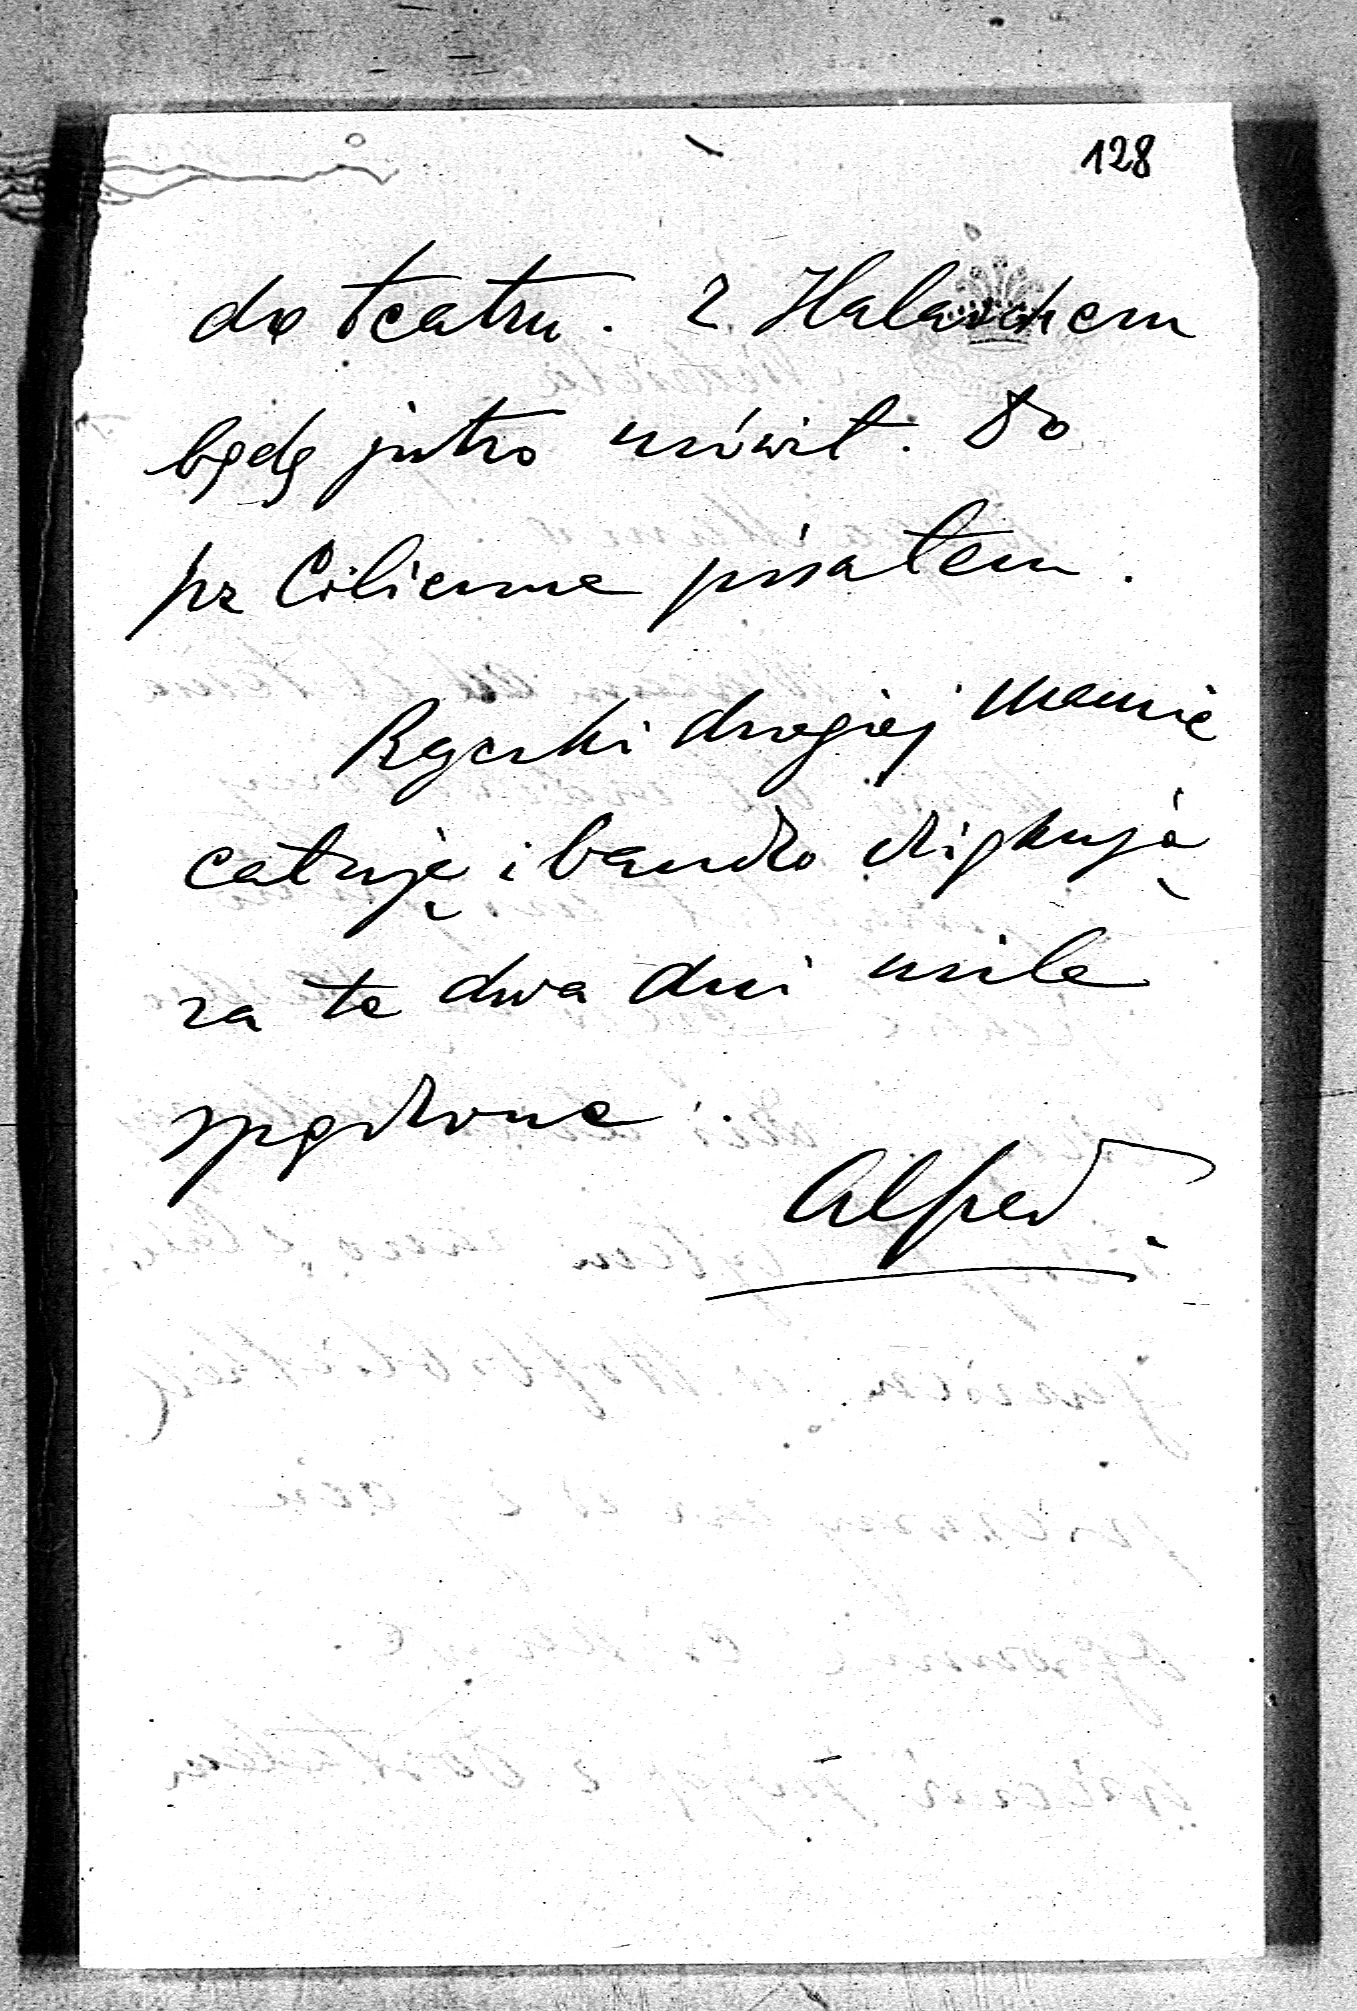 128
do teatru. Z Halaschem
będę jutro mówił. Do
pr
pisałem.
Rączki drogiej Mamie
całuję i bardzo dziękuję
za te dwa dni mile
spędzone.
Alfred.